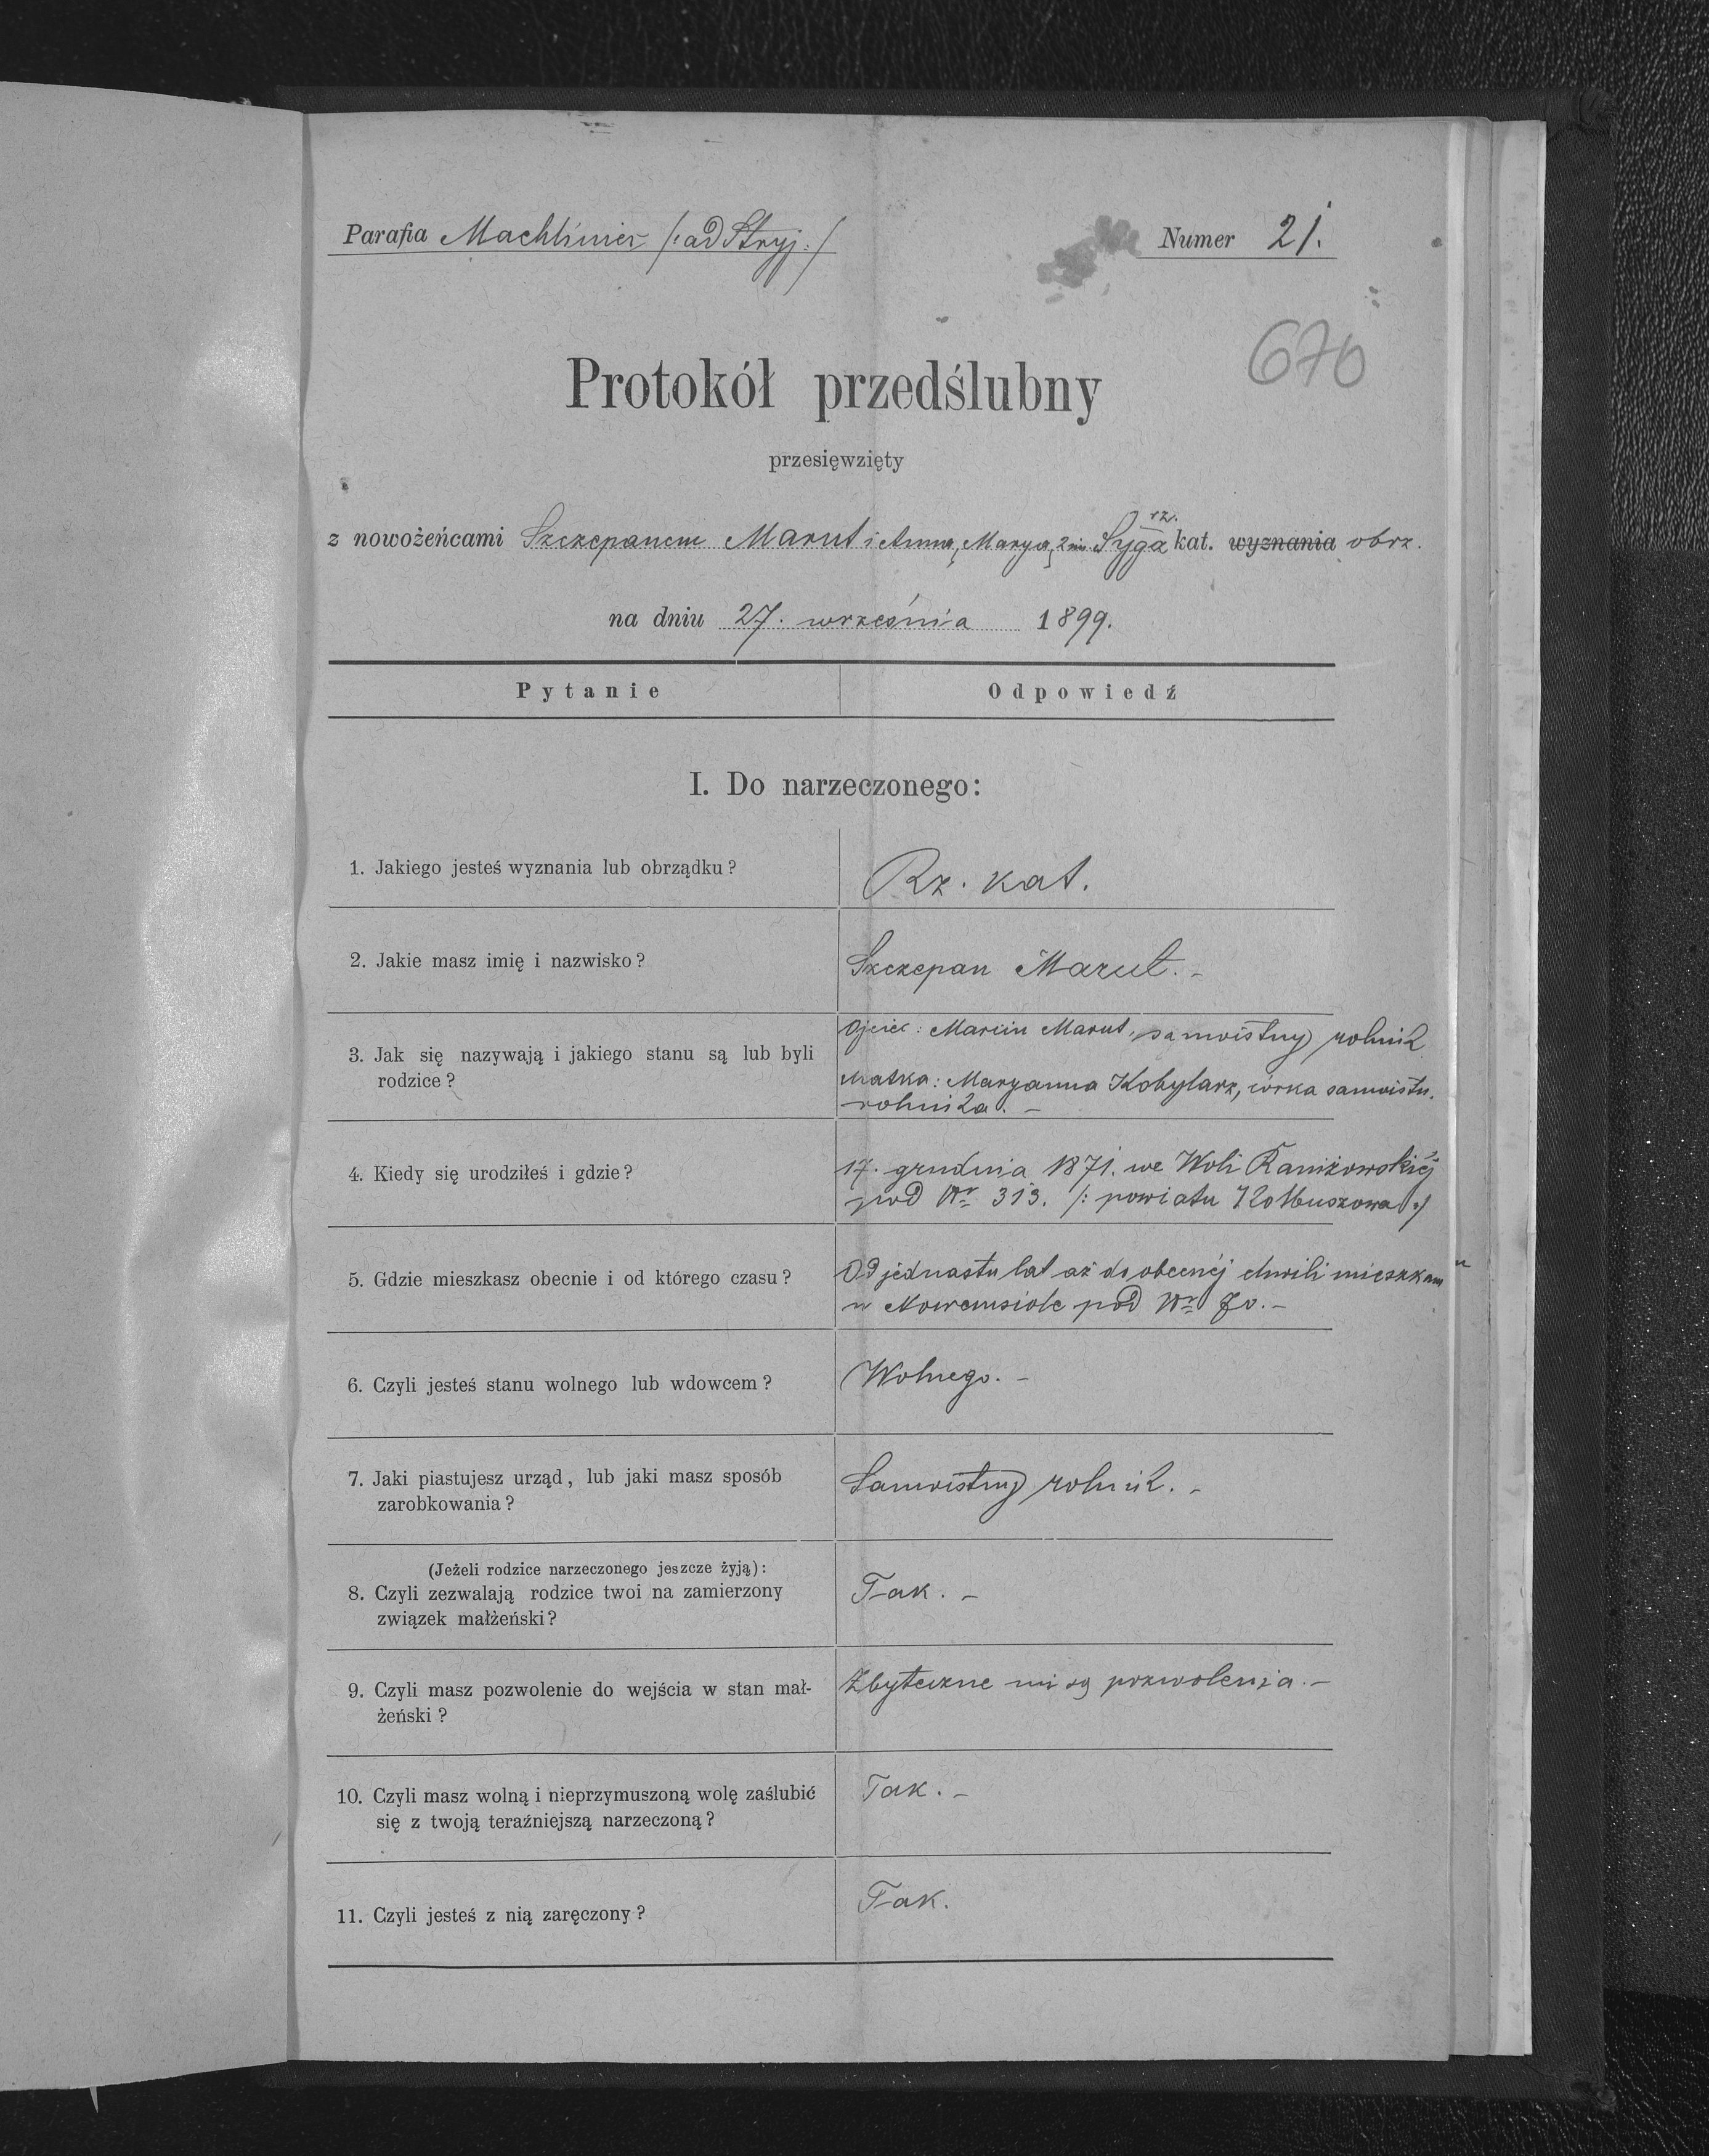 Parafia Machliniec /: ad Stryj :/ Numer 21.
670
Protokół przedślubny
przesięwzięty
rz.
z nowożeńcami Szczepanem Marut i Anną, Maryą, 2 im. Syga kat. wyznania obrz.
na dniu 27. września 1899.
Pytanie Odpowiedź
I. Do narzeczonego:
1. Jakiego jesteś wyznania lub obrządku? Rz. kat.
2. Jakie masz imię i nazwisko? Szczepan Marut. -
3. Jak się nazywają i jakiego stanu są lub byli
rodzice?
Ojciec: Marcin Marut, samoistny rolnik
Matka: Maryanna Kobylarz, córka samoistn.
rolnika. -
4. Kiedy się urodziłeś i gdzie?
17. grudnia 1871. we Woli Raniżowskiéj
pod Nr 313. /: powiatu Kolbuszowa :/
5. Gdzie mieszkasz obecnie i od którego czasu?
Od jednastu lat aż do obecnéj chwili mieszkam
w Nowemsiole pod Nr 70. -
6. Czyli jesteś stanu wolnego lub wdowcem? Wolnego. -
7. Jaki piastujesz urząd, lub jaki masz sposób
zarobkowania?
Samoistny rolnik. -
(Jeżeli rodzice narzeczonego jeszcze żyją):
8. Czyli zezwalają rodzice twoi na zamierzony
związek małżeński?
Tak. -
9. Czyli masz pozwolenie do wejścia w stan mał-
żeński?
Zbyteczne mi są pozwolenia. -
10. Czyli masz wolną i nieprzymuszoną wolę zaślubić
się z twoją teraźniejszą narzeczoną?
Tak. -
11. Czyli jesteś z nią zaręczony? Tak.